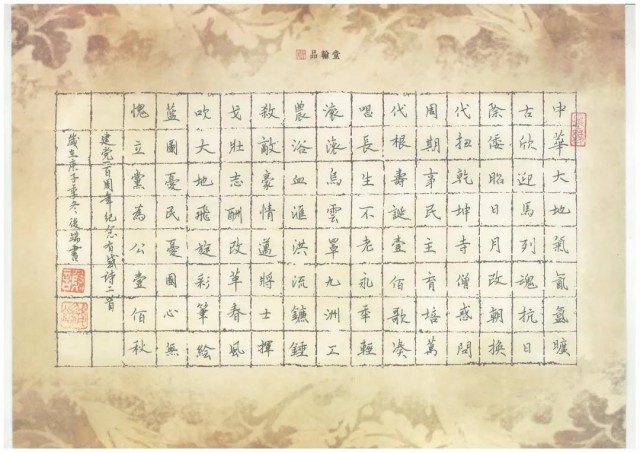 品翰堂
中華大地氣氤氳曠
古欣迎馬列魂抗日
除倭昭日月改朝換
代扭乾坤寺僧惑問
周期事民主育培萬
代根壽誕壹佰歌湊
唱長生不老永年輕
滾滾烏雲罩九洲工
農浴血滙洪流鐮錘
殺敵豪情邁將士揮
戈壯志酬改革春風
吹大地飛旋彩筆繪
藍圖憂民憂國心無
愧立黨為公壹佰秋
建党一百周年纪念有感诗二首
歲在庚子季冬後端書